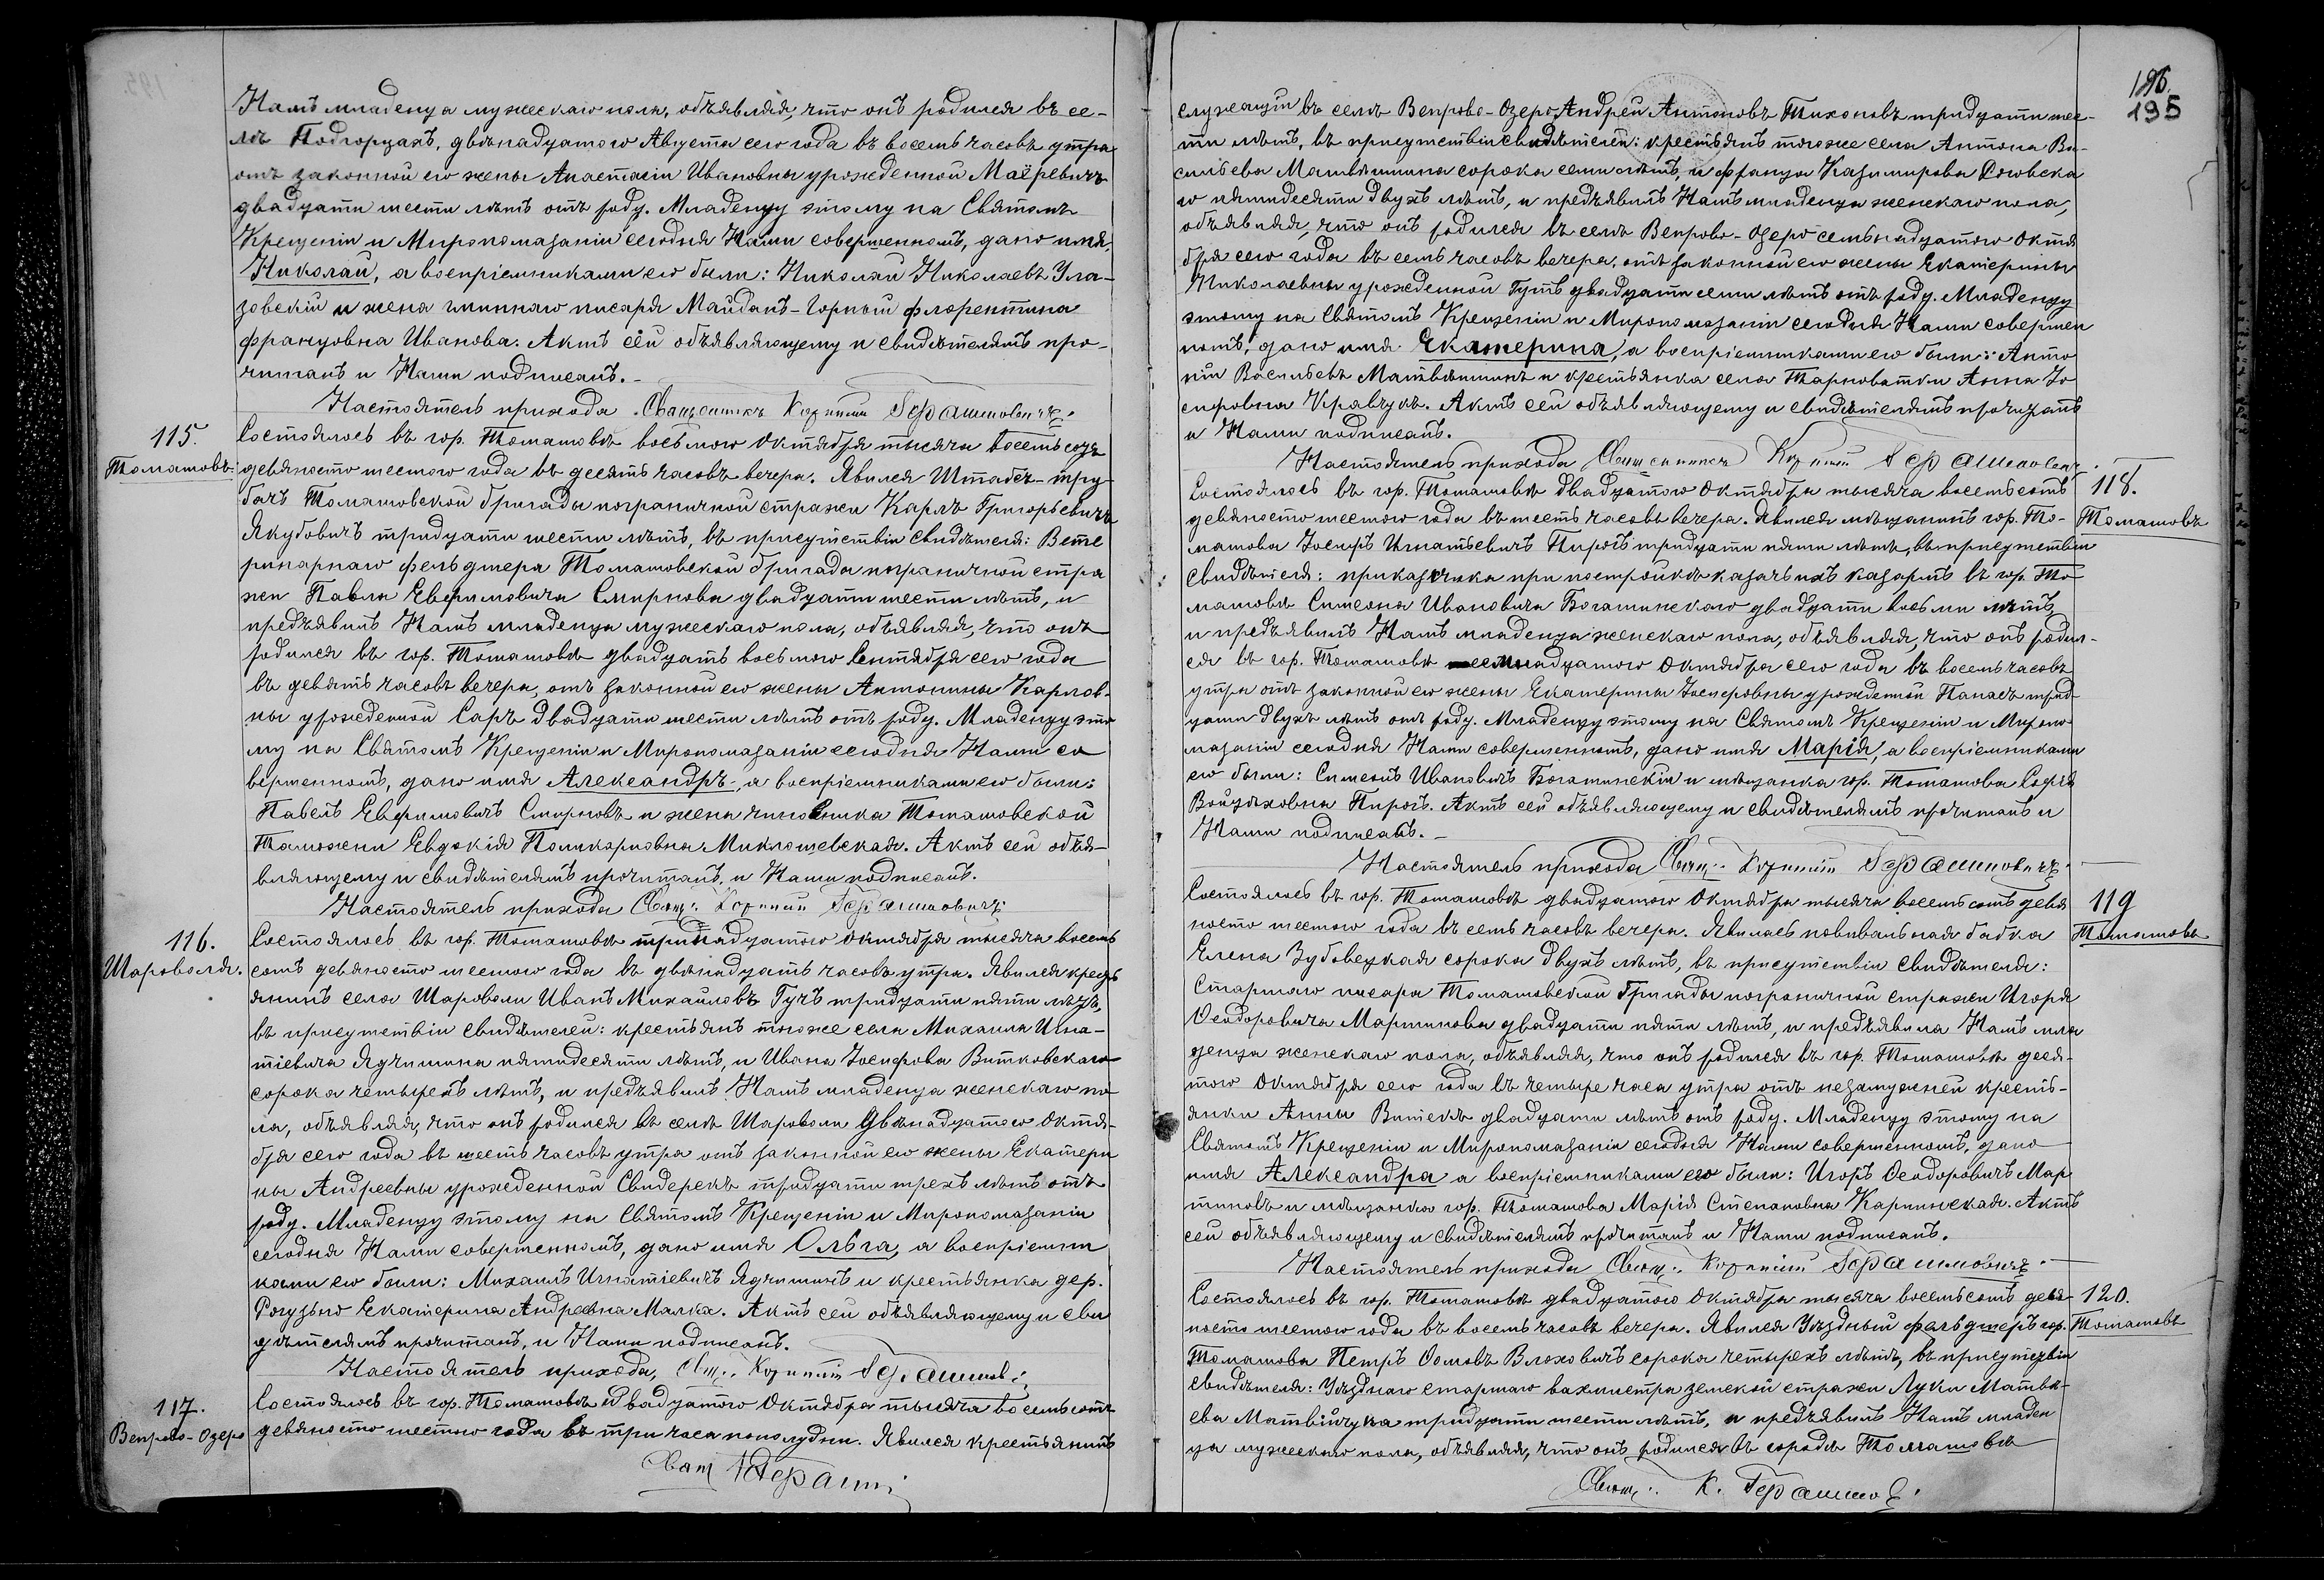 Намъ младенца мужескаго пола, объявляя, что онъ родился въ се-
лѣ Подгорцахъ, двѣнадцатого Августа сего года въ восемь часовъ утра
отъ законной его жены Анастасіи Ивановны урожденной Маёревичъ
двадцати шести лѣтъ отъ роду. Младенцу этому на Святомъ
Крещеніи и Миропомазаніи сегодня Нами совершенномъ, дано имя,
Николай, а воспріемниками его были: Николай Николаевъ Ула-
зовскій и жена гминнаго писаря Майданъ-Горный Флорентина
Францовна Иванова. Актъ сей объявляющему и свидѣтелямъ про-
читанъ и Нами подписанъ.
Настоятель прихода Священникъ Корнилій Герашимовичъ.
115.
Томашовъ.
Состоялось въ гор. Томашовѣ восьмого Октября тысяча восемьсотъ
девяносто шестого года въ десять часовъ вечера. Явился Штабсъ-тру-
бачъ Томашовской бригады пограничной стражи Карлъ Григорьевичъ
Якубовичъ тридцати шести лѣтъ, въ присутствіи свидѣтеля: Вете
ринарнаго фельдшера Томашовской бригады пограничной стра
жи Павла Евфимовича Смирнова двадцати шести лѣтъ, и
предъявилъ Намъ младенца мужескаго пола, объявляя, что онъ
родился въ гор. Томашовѣ двадцать восьмого Сентября сего года
въ девять часовъ вечера, отъ законной его жены Антонины Карлов-
ны урожденной Саръ двадцати шести лѣтъ отъ роду. Младенцу это
му на Святомъ Крещеніи и Миропомазаніи сегодня Нами со
вершенномъ, дано имя Александръ, а воспріемниками его были:
Павелъ Евфимовичъ Смирновъ и жена чиновника Томашовской
Таможни Евдокія Поликарповна Миклошевская. Актъ сей объя-
вляющему и свидѣтелямъ прочитанъ, и Нами подписанъ.
Настоятель прихода Свящ. Корнилій Герашимовичъ
116.
Шароволя.
Состоялось въ гор. Томашовѣ тринадцатого Октября тысяча восемь
сотъ девяносто шестого года въ двѣнадцать часовъ утра. Явился кресть
янинъ села Шароволи Иванъ Михаиловъ Гучъ тридцати пяти лѣтъ,
въ присутствіи свидѣтелей: крестьянъ тогоже села Михаила Игна-
тіевича Ядчишина пятидесяти лѣтъ, и Ивана Іосифова Витковскаго
сорока четырехъ лѣтъ, и предъявилъ Намъ младенца женскаго по
ла, объявляя, что онъ родился въ селѣ Шароволи двѣнадцатого Октя-
бря сего года въ шесть часовъ утра отъ законной его жены Екатери
ны Андреевны урожденной Свидерекъ тридцати трехъ лѣтъ отъ
роду. Младенцу этому на Святомъ Крещеніи и Миропомазаніи
сегодня Нами совершенномъ, дано имя Ольга, а воспріемни
ками его были: Михаилъ Игнатіевичъ Ядчишинъ и крестьянка дер.
Рогузьно Екатерина Андреевна Малка. Актъ сей объявляющему и сви
дѣтелямъ прочитанъ, и Нами подписанъ.
Настоятель прихода, Свящ. Корнилій Герашимов.
117.
Вепрово-Озеро
Состоялось въ гор. Томашовѣ двадцатого Октября тысяча восемьсотъ
девяносто шестого года въ три часа пополудни. Явился крестьянинъ
Свящ. К. Герашим.
196.
195
служащій въ селѣ Вепрово-Озеро Андрей Антоновъ Тихоновъ тридцати шес-
ти лѣтъ, въ присутствіи свидѣтелей: крестьянъ тогоже села Антона Ва-
сильева Матвѣишина сорока семи лѣтъ, и Франца Казимирова Соквска
го пятидесяти двухъ лѣтъ, и предъявилъ Намъ младенца женскаго пола,
объявляя, что онъ родился въ селѣ Вепрово-Озеро семьнадцатого Октя
бря сего года въ семь часовъ вечера, отъ законной его жены Екатерины
Николаевны урожденной Гутъ двадцати семи лѣтъ отъ роду. Младенцу
этому на Святомъ Крещеніи и Миропомазаніи сегодня Нами совершен
номъ, дано имя Екатерина, а воспріемниками его были: Анто
ній Васильевъ Матвѣишинъ и крестьянка села Тарноватки Анна Іо
сифовна Кравчукъ. Актъ сей объявляющему и свидѣтелямъ прочитанъ
и Нами подписанъ.
Настоятель прихода Священникъ Корнилій Герашимович
118.
Томашовъ
Состоялось въ гор. Томашовѣ двадцатого Октября тысяча восемьсотъ
девяносто шестого года въ шесть часовъ вечера. Явился мѣщанинъ гор. То-
машова Іосифъ Игнатьевичъ Пирогъ тридцати пяти лѣтъ, въ присутствіи
свидѣтеля: приказчика при постройкѣ казачьихъ казармъ въ гор. То
машовѣ Симеона Ивановича Богатинскаго двадцати восьми лѣтъ,
и предъявилъ Намъ младенца женскаго пола, объявляя, что онъ родил-
ся въ гор. Томашовѣ семнадцатого Октября сего года въ восемь часовъ
утра отъ законной его жены Екатерины Іосифовны урожденной Панасъ трид-
цати двухъ лѣтъ отъ роду. Младенцу этому на Святомъ Крещеніи и Миропо
мазаніи сегодня Нами совершенномъ, дано имя Марія, а воспріемниками
его были: Симеонъ Ивановичъ Богатинскій и мѣщанка гор. Томашова Софія
Войцѣховна Пирогъ. Актъ сей объявляющему и свидѣтелямъ прочитанъ и
Нами подписанъ.
Настоятель прихода Свящ. Корнилій Герашимовичъ
119
Томашовъ
Состоялось въ гор. Томашовѣ двадцатого Октября тысяча восемьсотъ девя
носто шестого года въ семь часовъ вечера. Явилась повивальная бабка
Елена Зубовецкая сорока двухъ лѣтъ, въ присутствіи свидѣтеля:
Старшаго писаря Томашовской бригады пограничной стражи Игоря
Ѳеодоровича Мартинова двадцати пяти лѣтъ, и предъявила Намъ мла
денца женскаго пола, объявляя, что онъ родился въ гор. Томашовѣ деся-
того Октября сего года въ четыре часа утра отъ незамужней кресть-
янки Анны Витекъ двадцати лѣтъ отъ роду. Младенцу этому на
Святомъ Крещеніи и Миропомазаніи сегодня Нами совершенномъ, дано
имя Александра а воспріемниками его были: Игорь Ѳеодоровичъ Мар
тиновъ и мѣщанка гор. Томашова Марія Степановна Карпинская. Актъ
сей объявляющему и свидѣтелямъ прочитанъ и Нами подписанъ.
Настоятель прихода Свящ. Корнилій Герашимовичъ.
120.
Томашовъ
Состоялось въ гор. Томашовѣ двадцатого Октября тысяча восемьсотъ девя-
носто шестого года въ восемь часовъ вечера. Явился Уѣздный фельдшеръ гор.
Томашова Петръ Ѳомовъ Влоховичъ сорока четырехъ лѣтъ, въ присутствіи
свидѣтеля: Уѣзднаго старшаго вахмистра земской стражи Луки Матвѣ-
ева Матвійчука тридцати шести лѣтъ, и предъявилъ Намъ младен
ца мужескаго пола, объявляя, что онъ родился въ городѣ Томашовѣ
Свящ. К. Герашимов.